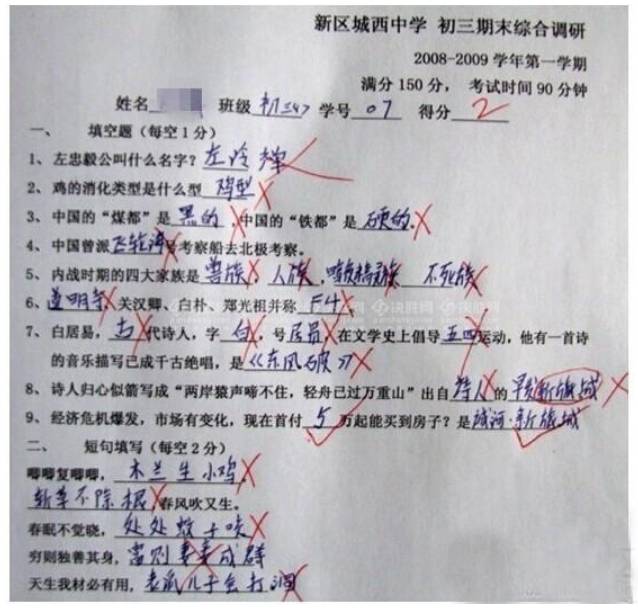 新区城西中学 初三期末综合调研
2008-2009 学年第一学期
满分 150 分， 考试时间 90 分钟
姓名 班级 初三(4) 学号 07 得分 2
一、 填空题（每空 1 分）
1、左忠毅公叫什么名字？左冷禅
2、鸡的消化类型是什么型 鸡型
3、中国的“煤都”是 黑的 ，中国的“铁都”是 硬的。
4、中国曾派 飞轮海 号考察船去北极考察。
5、内战时期的四大家族是 兽族 人族 ，暗夜精灵族 不死族
6、道明寺、关汉卿、白朴、郑光祖并称 F4
7、白居易，古 代诗人，字 白 ，号 居易 在文学史上倡导 五四 运动，他有一首诗
的音乐描写已成千古绝唱，是《东风破》
8、诗人归心似箭写成“两岸猿声啼不住，轻舟已过万重山”出自 诗人 的 新旅城
9、经济危机爆发，市场有变化，现在首付 5 万起能买到房子？是 新旅城
二、 短句填写（每空 2 分）
唧唧复唧唧，木兰生小鸡。
斩草不除根 春风吹又生。
春眠不觉晓，处处蚊子咬
穷则独善其身，富则妻妾成群
天生我材必有用，老鼠儿子会打洞
决胜网